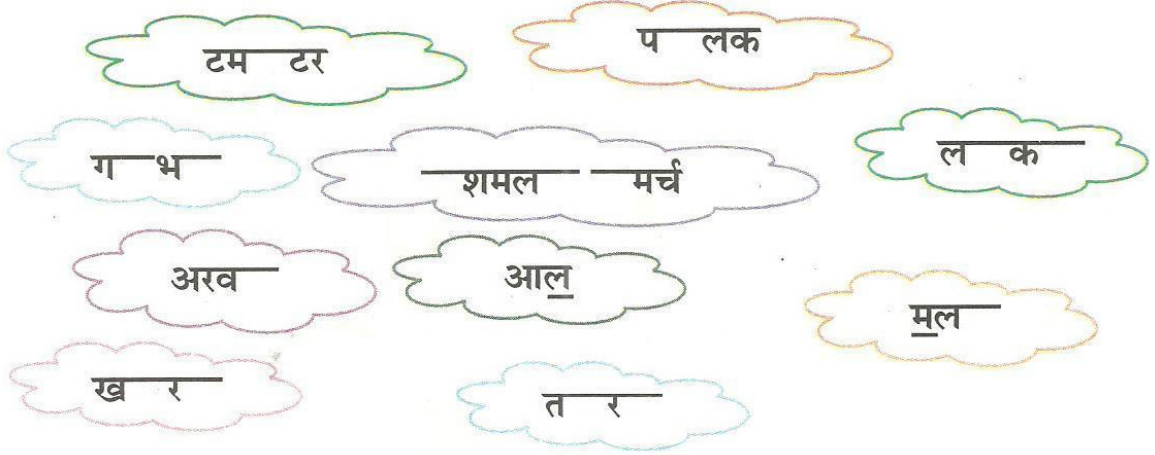 टम__टर
प__लक
ग__भ__
__शमल __मर्च
ल__क__
अरव__
आल_
म_ल__
ख__र__
त__र__